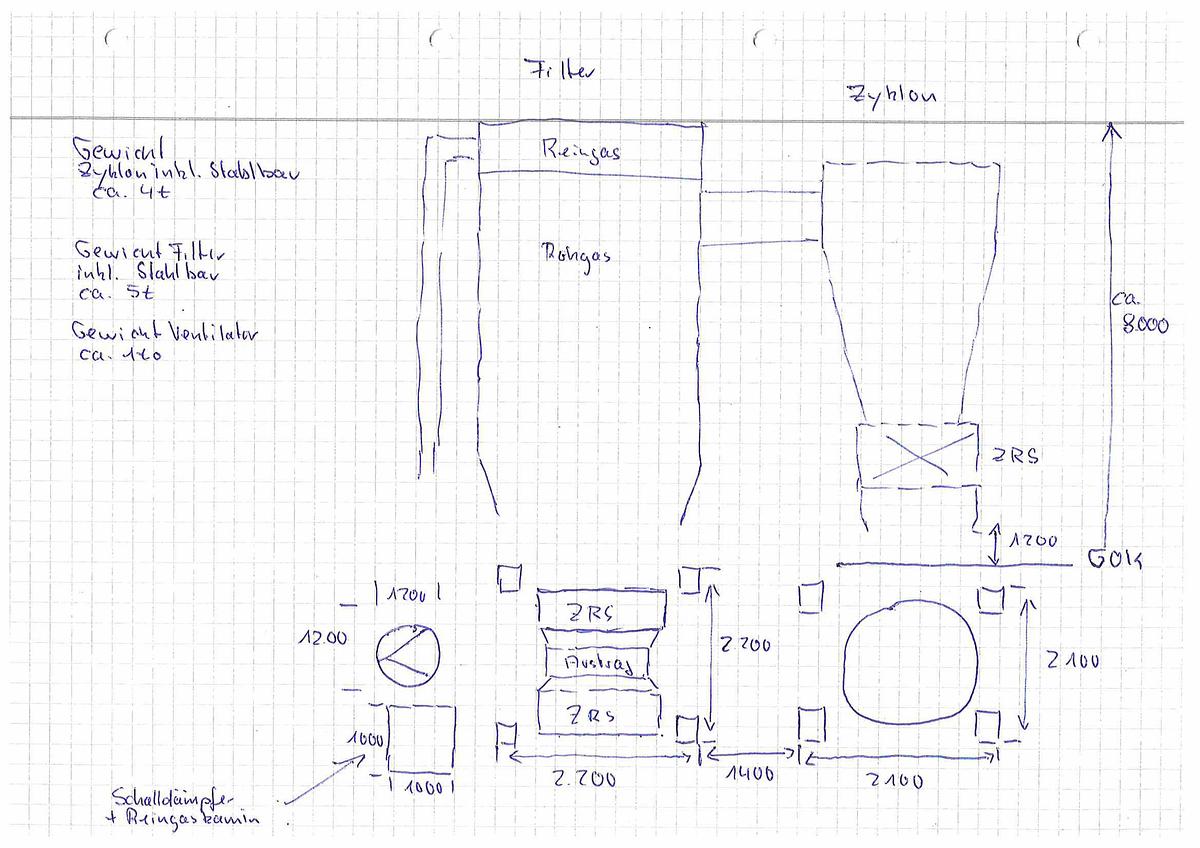 Filter
Zyklon
Gewicht
Zyklon inkl. Stahlbau
ca. 4t
Reingas
Gewicht Filter
inkl. Stahlbau
ca. 5t
Rohgas
Gewicht Ventilator
ca. 1to
ca.
8.000
ZRS
1200
GOK
1200
12.00
ZRS
Austrag
ZRS
2.200
2100
1000
1000
2.200
1400
2100
Schalldämpfer
+ Reingaskamin